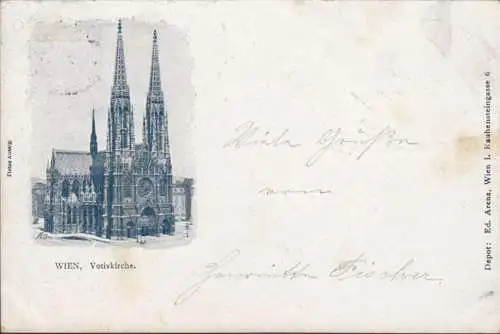 WIEN, Votivkirche.
Viele Grüße
von
Henriette Fischer
Depot: Ed. Arenz, Wien I. Rauhensteingasse 6